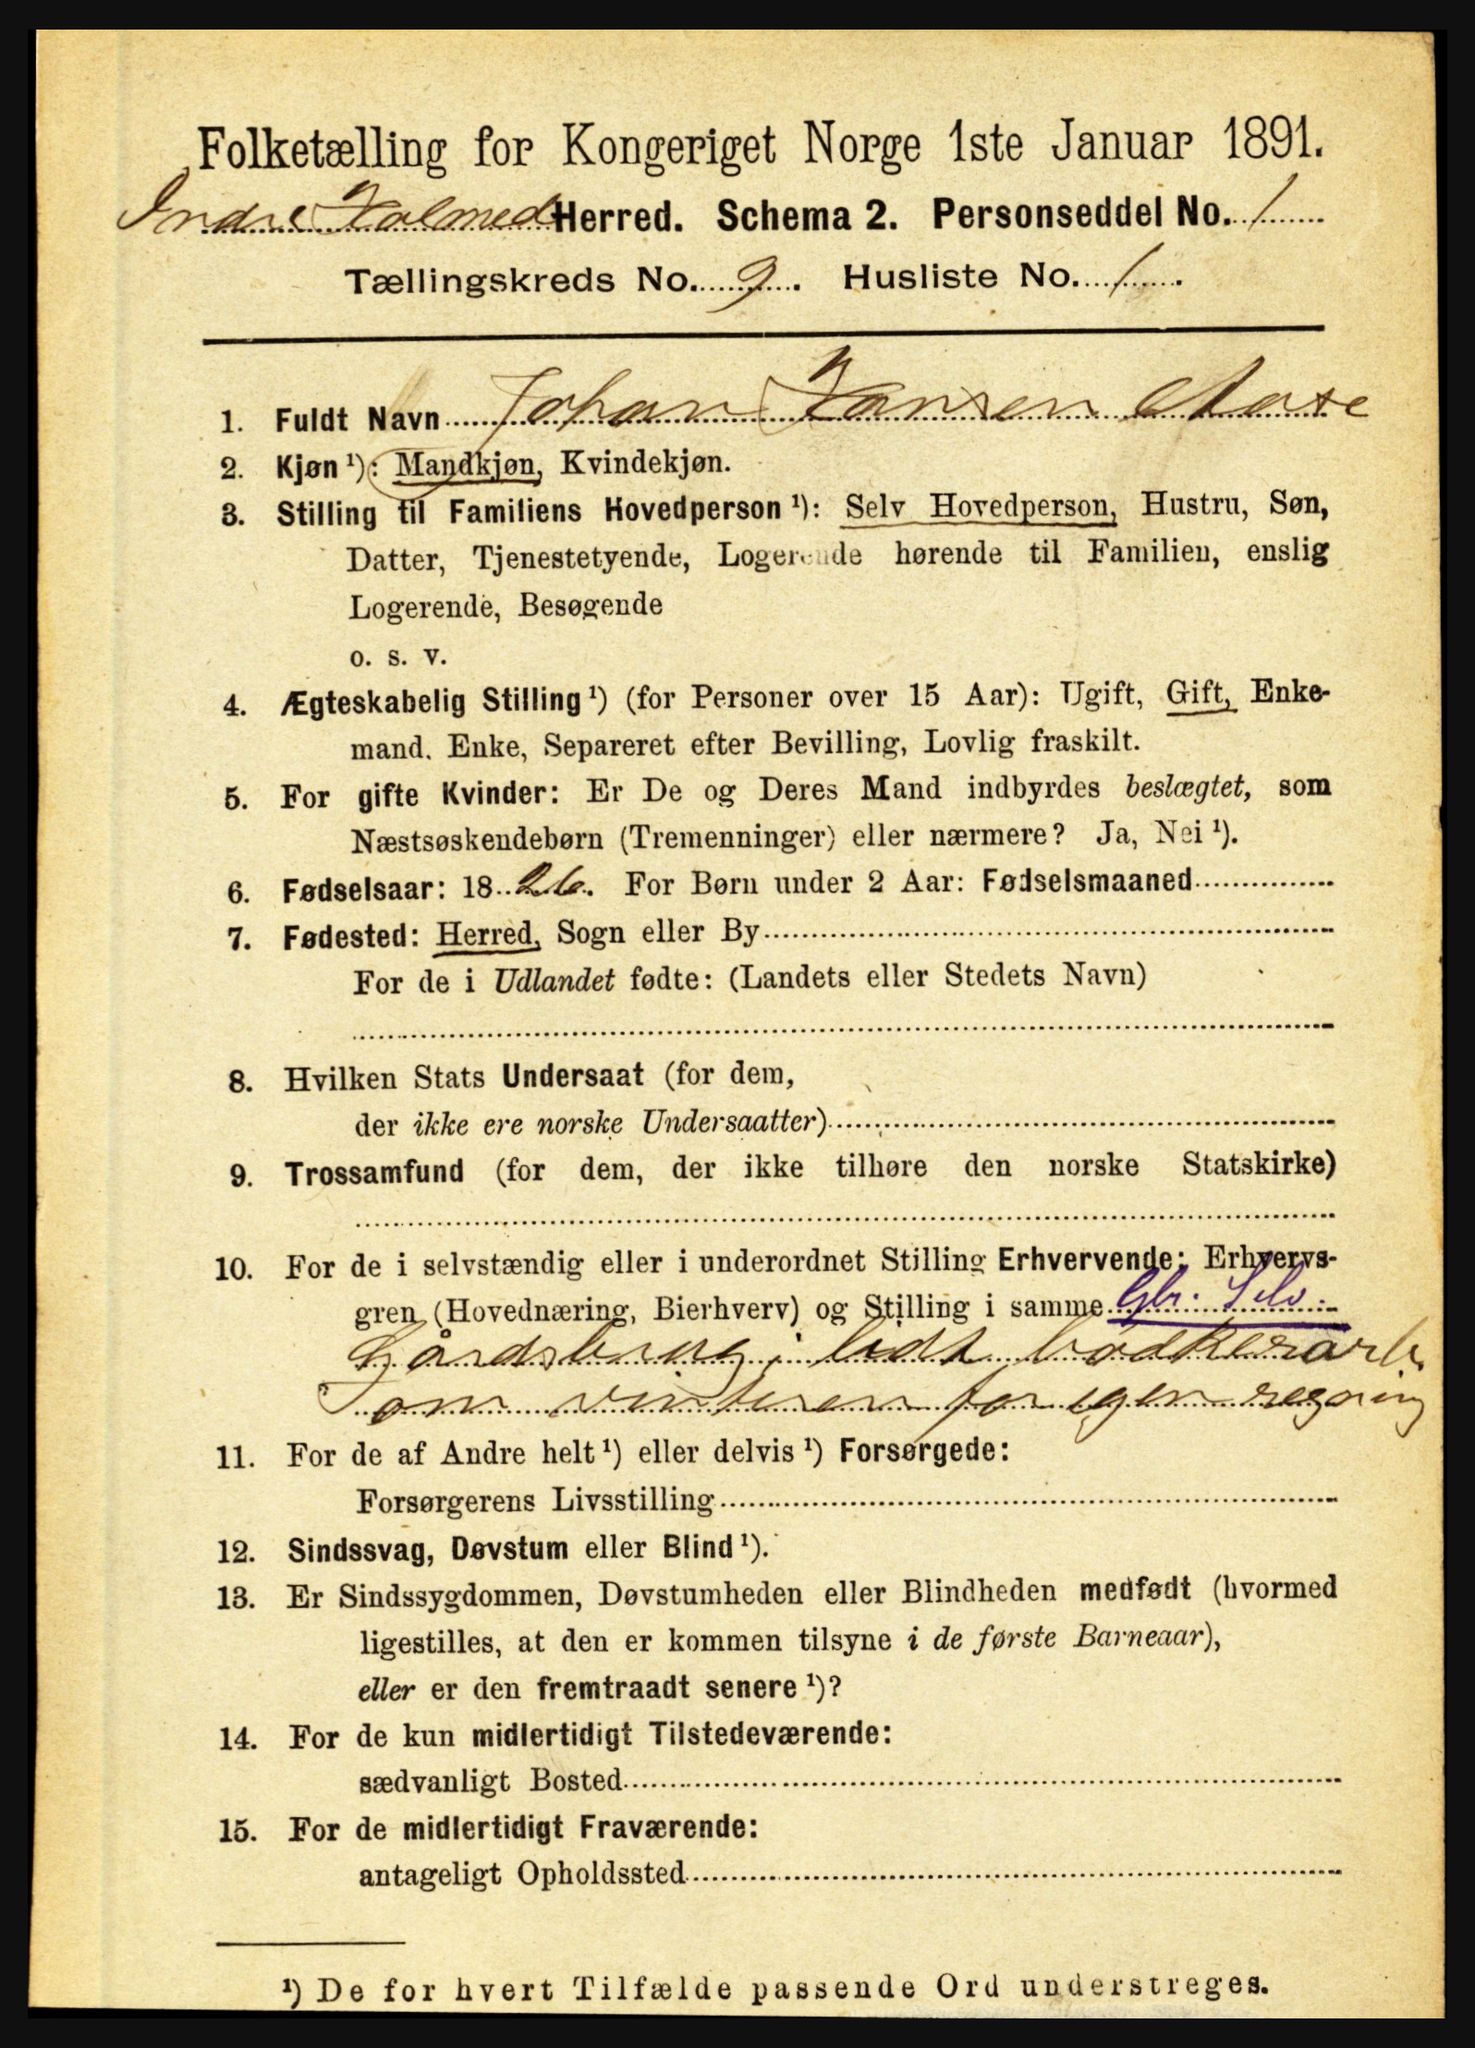 Folketælling for Kongeriget Norge 1ste Januar 1891.
Indre Holmedal Herred. Schema 2. Personseddel No. 1
Tællingskreds No. 9. Husliste No. 1.
1. Fuldt Navn Johan Hansen Aase
2. Kjøn ¹): Mandkjøn, Kvindekjøn.
3. Stilling til Familiens Hovedperson ¹): Selv Hovedperson, Hustru, Søn,
Datter, Tjenestetyende, Logerende hørende til Familien, enslig
Logerende, Besøgende
o. s. v.
4. Ægteskabelig Stilling ¹) (for Personer over 15 Aar): Ugift, Gift, Enke-
mand. Enke, Separeret efter Bevilling, Lovlig fraskilt.
5. For gifte Kvinder: Er De og Deres Mand indbyrdes beslægtet, som
Næstsøskendebørn (Tremenninger) eller nærmere? Ja, Nei ¹).
6. Fødselsaar: 1826. For Børn under 2 Aar: Fødselsmaaned
7. Fødested: Herred, Sogn eller By
For de i Udlandet fødte: (Landets eller Stedets Navn)
8. Hvilken Stats Undersaat (for dem,
der ikke ere norske Undersaatter)
9. Trossamfund (for dem, der ikke tilhøre den norske Statskirke)
10. For de i selvstændig eller i underordnet Stilling Erhvervende: Erhvervs-
gren (Hovednæring, Bierhverv) og Stilling i samme Gbr. Selv.
Gårdsbrug, lidt bødkerarb.
om vinteren for egen regning
11. For de af Andre helt ¹) eller delvis ¹) Forsørgede:
Forsørgerens Livsstilling
12. Sindssvag, Døvstum eller Blind ¹).
13. Er Sindssygdommen, Døvstumheden eller Blindheden medfødt (hvormed
ligestilles, at den er kommen tilsyne i de første Barneaar),
eller er den fremtraadt senere ¹)?
14. For de kun midlertidigt Tilstedeværende:
sædvanligt Bosted
15. For de midlertidigt Fraværende:
antageligt Opholdssted
¹) De for hvert Tilfælde passende Ord understreges.